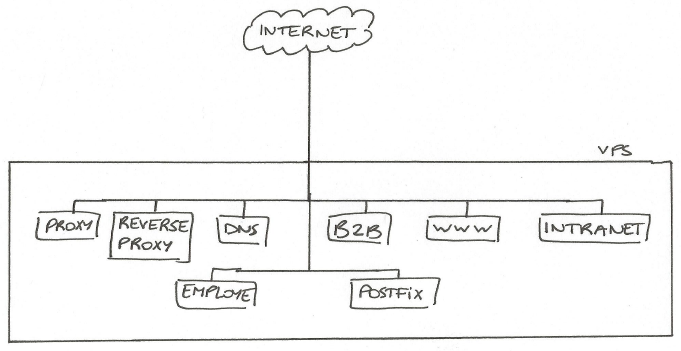 INTERNET
VPS
PROXY
REVERSE
PROXY
DNS
B2B
WWW
INTRANET
EMPLOYE
POSTFIX